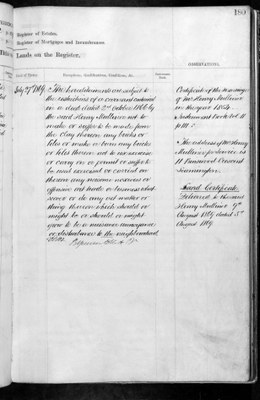 180
Register of Estates.
Register of Mortgages and Incumbrances.
Lands on the Register,
OBSERVATIONS.
Date of Entry.
Exceptions, Qualifications, Conditions, &c.
July 27 1869
The hereditaments are subject to
the restrictions of a covenant contained
in a deed dated 2nd October 1866 by
the said Henry Mullins not to
make or suffer to be made from
the Clay thereon any bricks or
tiles or make or burn any bricks
or tiles thereon not to exercise
or carry on or permit or suffer to
be used exercised or carried on
thereon any noisome noxious or
offensive art trade or business whatsoever
or do any act matter or
thing thereon which should or
might be or should or might
grow to be a nuisance annoyance
or disturbance to the neighbourhood
Certificate of the marriage
of Mr Henry Mullins
in the year 1864
Instrument book vol 11
The address of Mr Henry
Mullins for service is
11 Crescent
Kennington
Land Certificate
Delivered to the said
Henry Mullins
August 1869 dated 5th
August 1869